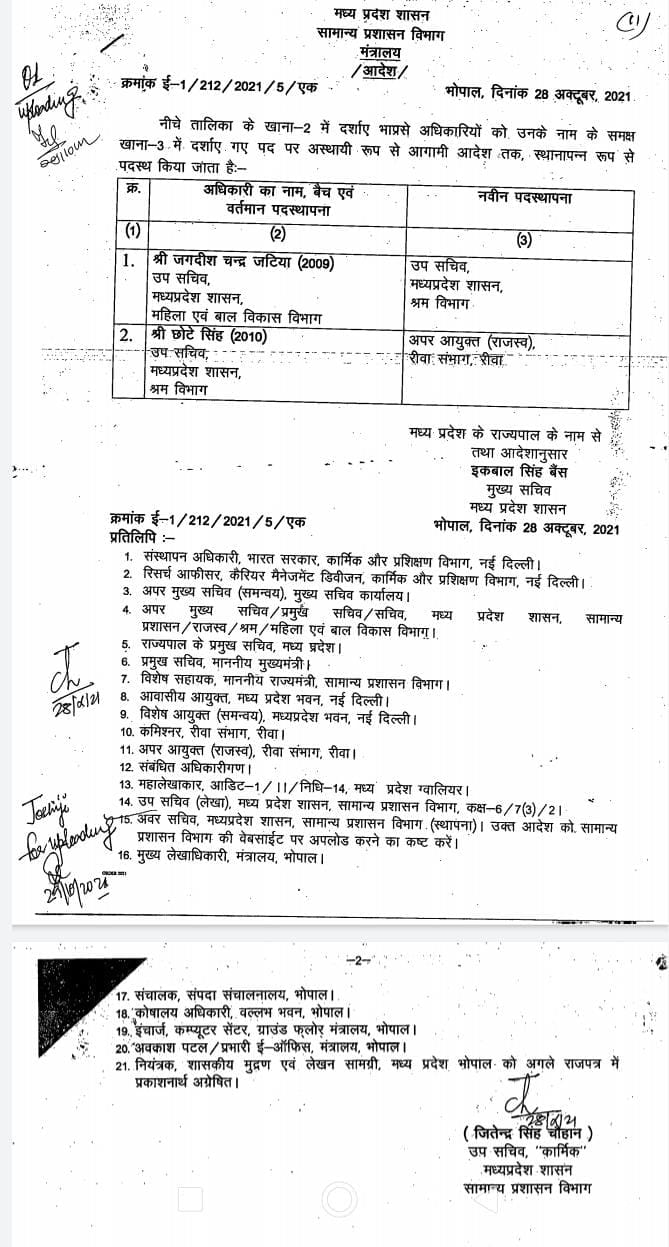 मध्य प्रदेश शासन
सामान्य प्रशासन विभाग
मंत्रालय
/आदेश/
(1)
क्रमांक ई–1/212/2021/5/एक
भोपाल, दिनांक 28 अक्टूबर, 2021
uploading
नीचे तालिका के खाना–2 में दर्शाए भाप्रसे अधिकारियों को उनके नाम के समक्ष
खाना–3 में दर्शाए गए पद पर अस्थायी रूप से आगामी आदेश तक, स्थानापन्न रूप से
पदस्थ किया जाता है:–
क्र. अधिकारी का नाम, बैच एवं वर्तमान पदस्थापना नवीन पदस्थापना
(1) (2) (3)
1. श्री जगदीश चन्द्र जटिया (2009)
उप सचिव,
मध्यप्रदेश शासन,
महिला एवं बाल विकास विभाग
उप सचिव,
मध्यप्रदेश शासन,
श्रम विभाग
2. श्री छोटे सिंह (2010)
उप सचिव,
मध्यप्रदेश शासन,
श्रम विभाग
अपर आयुक्त (राजस्व),
रीवा संभाग, रीवा
मध्य प्रदेश के राज्यपाल के नाम से
तथा आदेशानुसार
इकबाल सिंह बैंस
मुख्य सचिव
मध्य प्रदेश शासन
क्रमांक ई–1/212/2021/5/एक
भोपाल, दिनांक 28 अक्टूबर, 2021
प्रतिलिपि :–
1. संस्थापन अधिकारी, भारत सरकार, कार्मिक और प्रशिक्षण विभाग, नई दिल्ली।
2. रिसर्च आफीसर, कैरियर मैनेजमेंट डिवीजन, कार्मिक और प्रशिक्षण विभाग, नई दिल्ली।
3. अपर मुख्य सचिव (समन्वय), मुख्य सचिव कार्यालय।
4. अपर मुख्य सचिव/प्रमुख सचिव/सचिव, मध्य प्रदेश शासन, सामान्य
प्रशासन/राजस्व/श्रम/महिला एवं बाल विकास विभाग।
5. राज्यपाल के प्रमुख सचिव, मध्य प्रदेश।
6. प्रमुख सचिव, माननीय मुख्यमंत्री।
7. विशेष सहायक, माननीय राज्यमंत्री, सामान्य प्रशासन विभाग।
8. आवासीय आयुक्त, मध्य प्रदेश भवन, नई दिल्ली।
9. विशेष आयुक्त (समन्वय), मध्यप्रदेश भवन, नई दिल्ली।
10. कमिश्नर, रीवा संभाग, रीवा।
11. अपर आयुक्त (राजस्व), रीवा संभाग, रीवा।
12. संबंधित अधिकारीगण।
13. महालेखाकार, आडिट–1/11/निधि–14, मध्य प्रदेश ग्वालियर।
14. उप सचिव (लेखा), मध्य प्रदेश शासन, सामान्य प्रशासन विभाग, कक्ष–6/7(3)/2।
15. अवर सचिव, मध्यप्रदेश शासन, सामान्य प्रशासन विभाग (स्थापना)। उक्त आदेश को सामान्य
प्रशासन विभाग की वेबसाईट पर अपलोड करने का कष्ट करें।
16. मुख्य लेखाधिकारी, मंत्रालय, भोपाल।
for uploading
–2–
17. संचालक, संपदा संचालनालय, भोपाल।
18. कोषालय अधिकारी, वल्लभ भवन, भोपाल।
19. इंचार्ज, कम्प्यूटर सेंटर, ग्राउंड फ्लोर मंत्रालय, भोपाल।
20. अवकाश पटल/प्रभारी ई–ऑफिस, मंत्रालय, भोपाल।
21. नियंत्रक, शासकीय मुद्रण एवं लेखन सामग्री, मध्य प्रदेश भोपाल को अगले राजपत्र में
प्रकाशनार्थ अग्रेषित।
( जितेन्द्र सिंह चौहान )
उप सचिव, "कार्मिक"
मध्यप्रदेश शासन
सामान्य प्रशासन विभाग